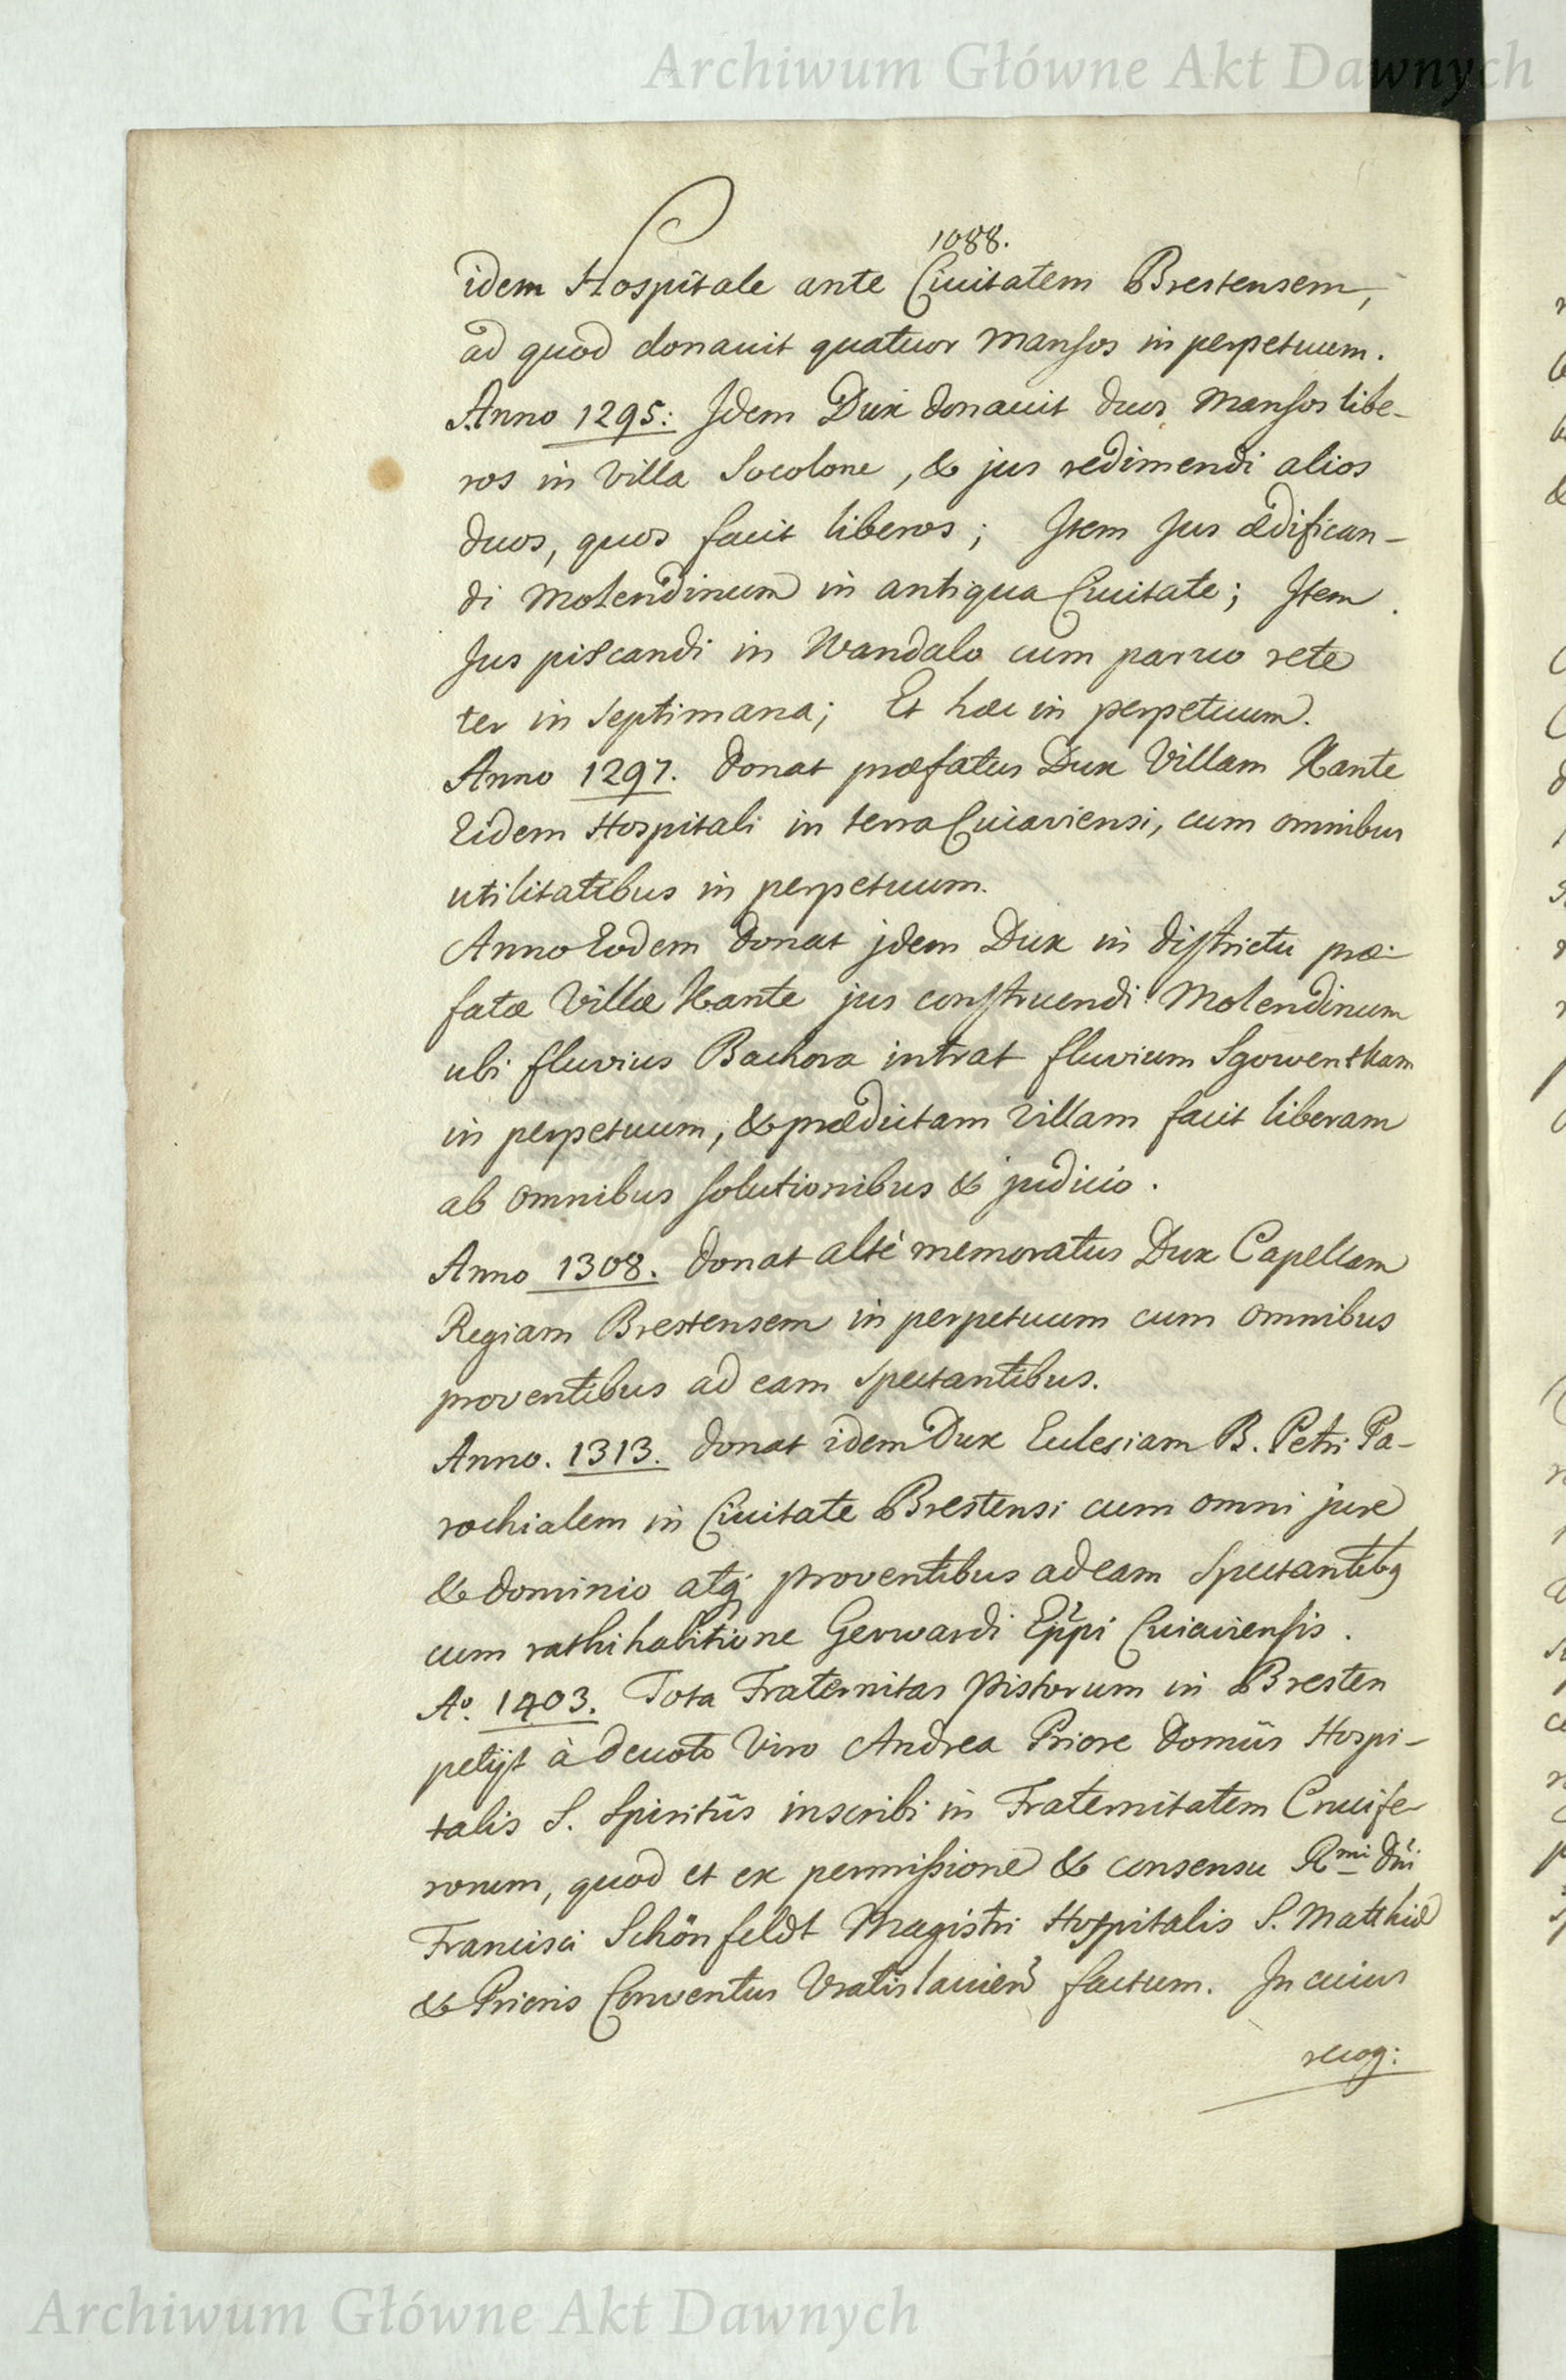 Archiwum Główne Akt Dawnych
1088.
idem Hospitale ante Ciuitatem Brestensem,
ad quod donauit quatuor Mansos in perpetuum.
Anno 1295: Jdem Dux donauit duos Mansos libe-
ros in Villa Socolone, & jus redimendi alios
duos, quos facit liberos; Jtem Jus ædifican-
di Molendinum in antiqua Ciuitate; Jtem
Jus piscandi in Wandalo cum paruo rete
ter in septimana; Et hæc in perpetuum.
Anno 1297. Donat præfatus Dux Villam Kante
Eidem Hospitali in terra Cuiaviensi, cum omnibus
utilitatibus in perpetuum.
Anno Eodem Donat jdem Dux in districtu præ-
fatæ Villæ Kante jus construendi Molendinum
ubi fluvius Bachora intrat fluvium Sgowentkam
in perpetuum, & prædictam Villam facit liberam
ab omnibus solutionibus & judicio.
Anno 1308. Donat altè memoratus Dux Capellam
Regiam Brestensem in perpetuum cum omnibus
proventibus ad eam spectantibus.
Anno. 1313. Donat idem Dux Ecclesiam B. Petri Pa-
rochialem in Ciuitate Brestensi cum omni jure
& dominio atq; proventibus ad eam spectantibq
cum rathihabitione Gerwardi Epp̃i Cuiauiensis.
Aº. 1403. Tota Fraternitas Pistorum in Bresten
petijt à deuoto Viro Andrea Priore Domûs Hospi-
talis S. Spiritûs inscribi in Fraternitatem Crucife-
rorum, quod et ex permissione & consensu Rmi Dñi
Francisci Schönfeldt Magistri Hospitalis S. Matthiæ
& Prioris Conventus Vratislauien̉ factum. Jn cuius
recog:
Archiwum Główne Akt Dawnych